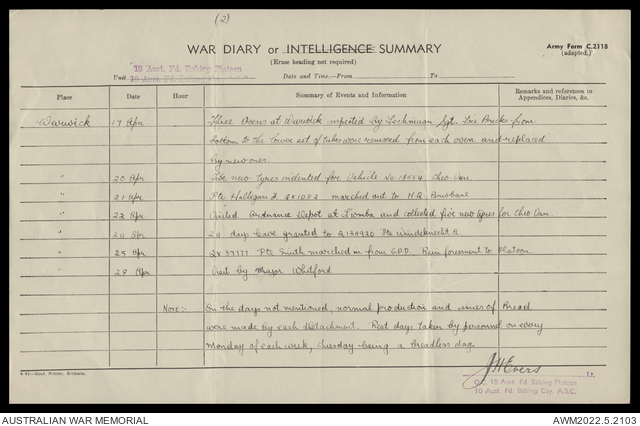 (2)
WAR DIARY or INTELLIGENCE SUMMARY
(Erase heading not required)
Army Form C.2118
(adapted.)
18 Aust. Fd. Baking Platoon
Unit
Date and Time—From To
Place Date Hour Summary of Events and Information Remarks and references to Appendices, Diaries, &c.
Warwick 17 Apr Three Ovens at Warwick inspected by Sgt. Fire Bricks from
bottom to the lower set of tubes were removed from each oven and replaced
by new ones.
" 20 Apr Five new tyres indented for Vehicle No. Chev Van.
" 21 Apr Pte Halligan marched out to H.Q. Brisbane
" 22 Apr Visited Ordnance Depot at and collected five new tyres for Chev Van.
" 24 Apr day leave granted to Q138930 Pte
" 25 Apr QX37777 Pte Smith marched in from G.D.D. Reinforcement to Platoon.
" 28 Apr Visit by Major Whitford
Note:- On the days not mentioned, normal production and issues of Bread
were made by each detachment. Rest days taken by personnel on every
Monday of each week, Tuesday being a breadless day.
J H Evers
O.C. 18 Aust. Fd. Baking Platoon
10 Aust. Fd. Baking Coy. A.S.C.
Govt. Printer, Brisbane
AUSTRALIAN WAR MEMORIAL AWM2022.5.2103